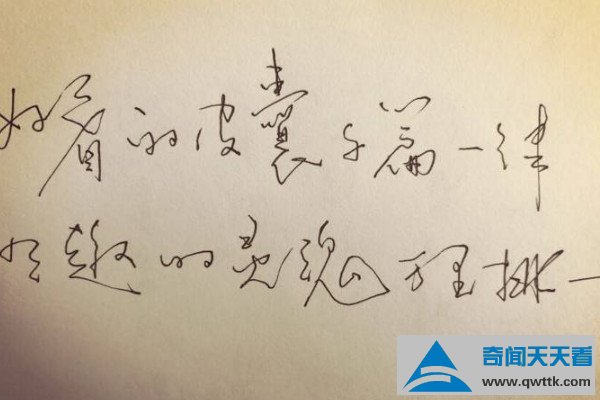 好看的皮囊千篇一律
有趣的灵魂万里挑一
奇闻天天看
www.qwttk.com